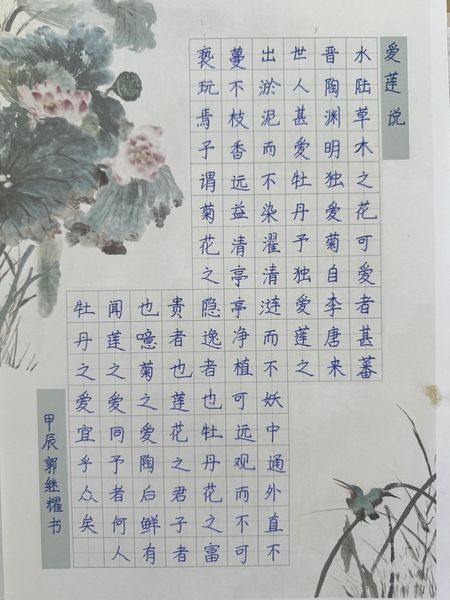 爱莲说
水陆草木之花可爱者甚蕃
晋陶渊明独爱菊自李唐来
世人甚爱牡丹予独爱莲之
出淤泥而不染濯清涟而不妖中通外直不
蔓不枝香远益清亭亭净植可远观而不可
亵玩焉予谓菊花之隐逸者也牡丹花之富
贵者也莲花之君子者
也噫菊之爱陶后鲜有
闻莲之爱同予者何人
牡丹之爱宜乎众矣
甲辰郭继耀书